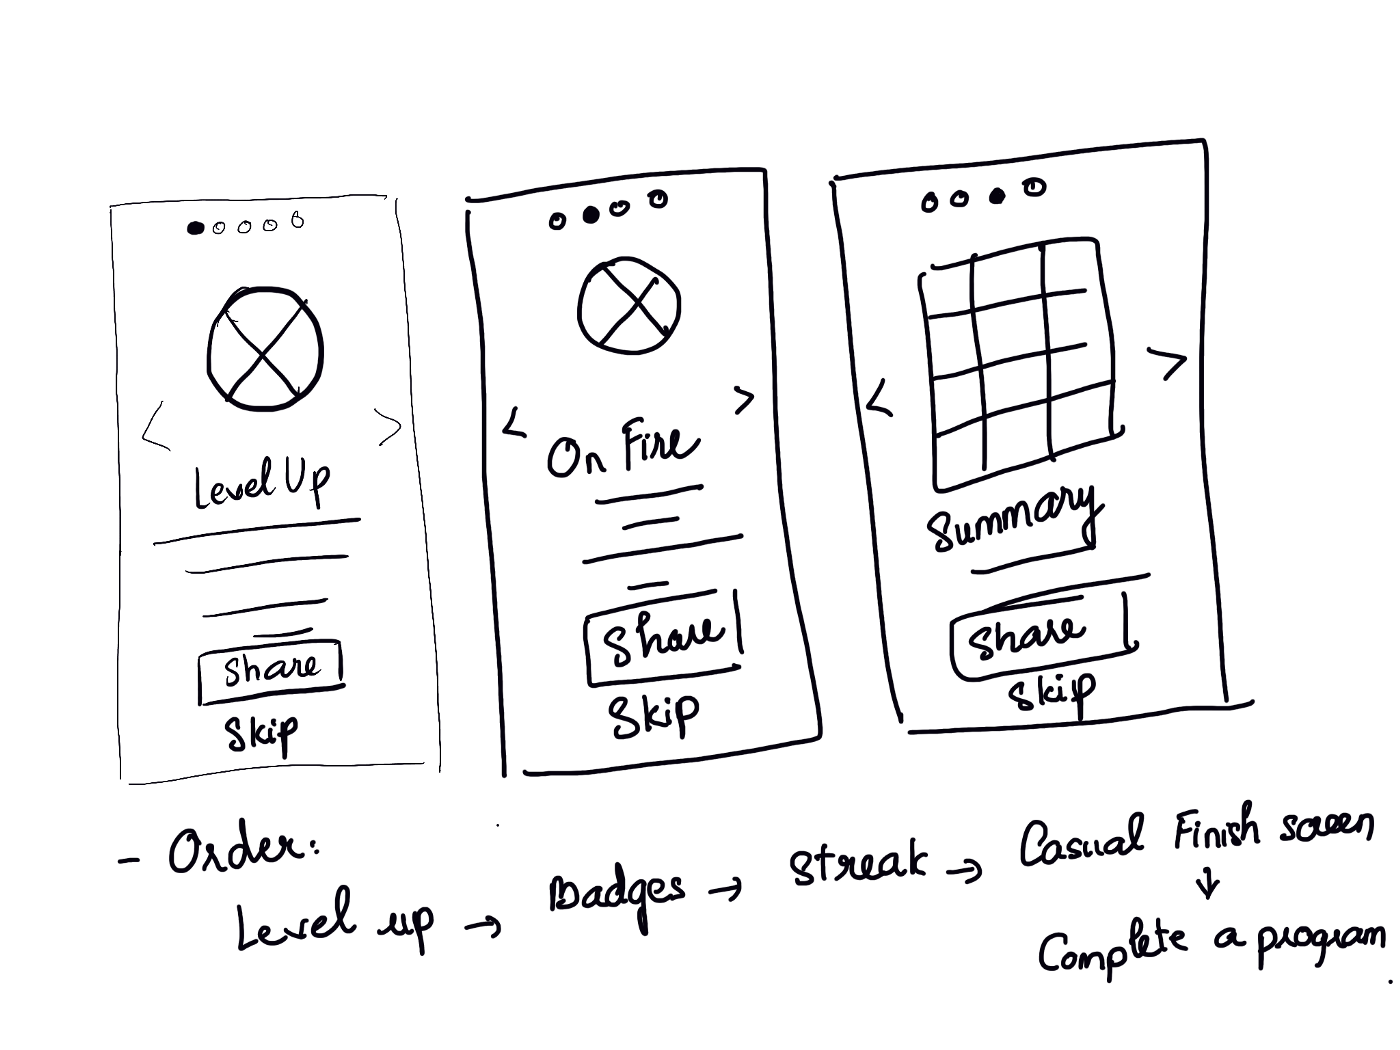 Level Up
Share
Skip
On Fire
Share
Skip
Summary
Share
Skip
- Order:
Level up → Badges → Streak → Casual Finish screen
↓
Complete a program